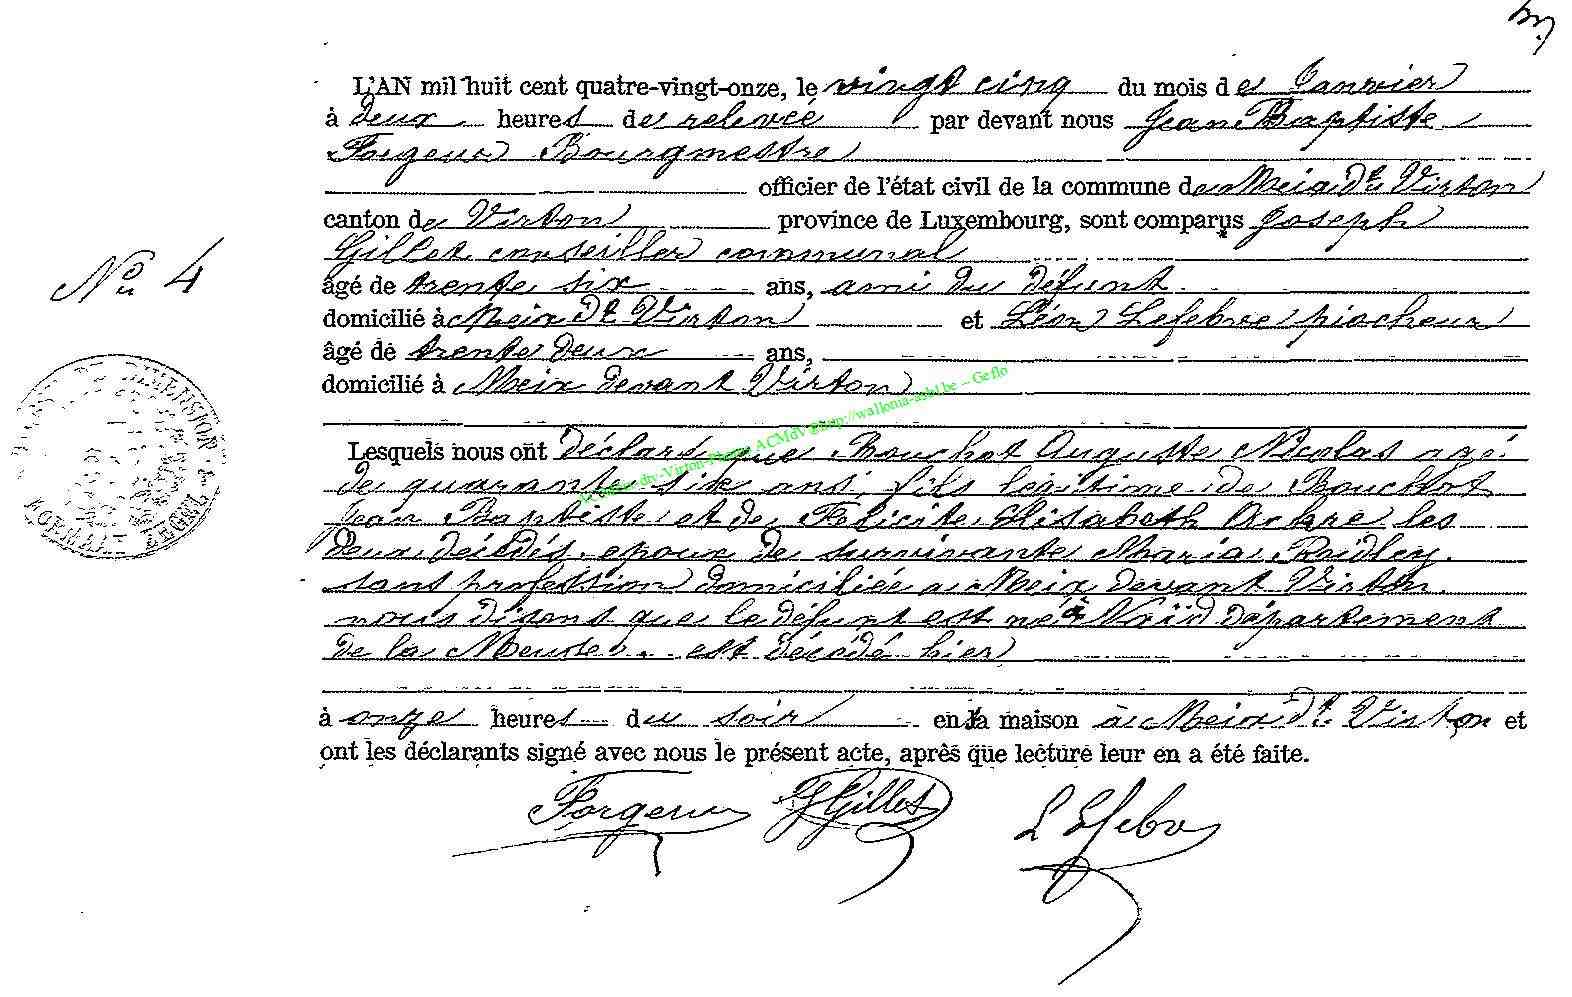 L'AN mil huit cent quatre-vingt-onze, le vingt cinq du mois de Janvier
à deux heures de relevée par devant nous Jean Baptiste
Forgeur Bourgmestre
officier de l'état civil de la commune de Meix dt Virton
canton de Virton province de Luxembourg, sont comparus Joseph
Gillet conseiller communal
N° 4
âgé de trente six ans, ami du défunt
domicilié à Meix dt Virton et Léon Lefebvre piocheur
âgé de trente deux ans,
domicilié à Meix devant Virton
Lesquels nous ont déclaré que Bouchot Auguste Nicolas agé
de quarante six ans, fils légitime de Bouchot
Jean Baptiste et de Félicité Elisabeth les
deux décédés. epoux de survivante Maria Ridley.
sans profession domiciliée a Meix devant Virton.
nous disons que le défunt est né à département
de la Meuse. est décédé hier
à onze heures du soir en la maison à Meix dt Virton et
ont les déclarants signé avec nous le présent acte, après que lecture leur en a été faite.
Forgeur JGillet L Lefebv